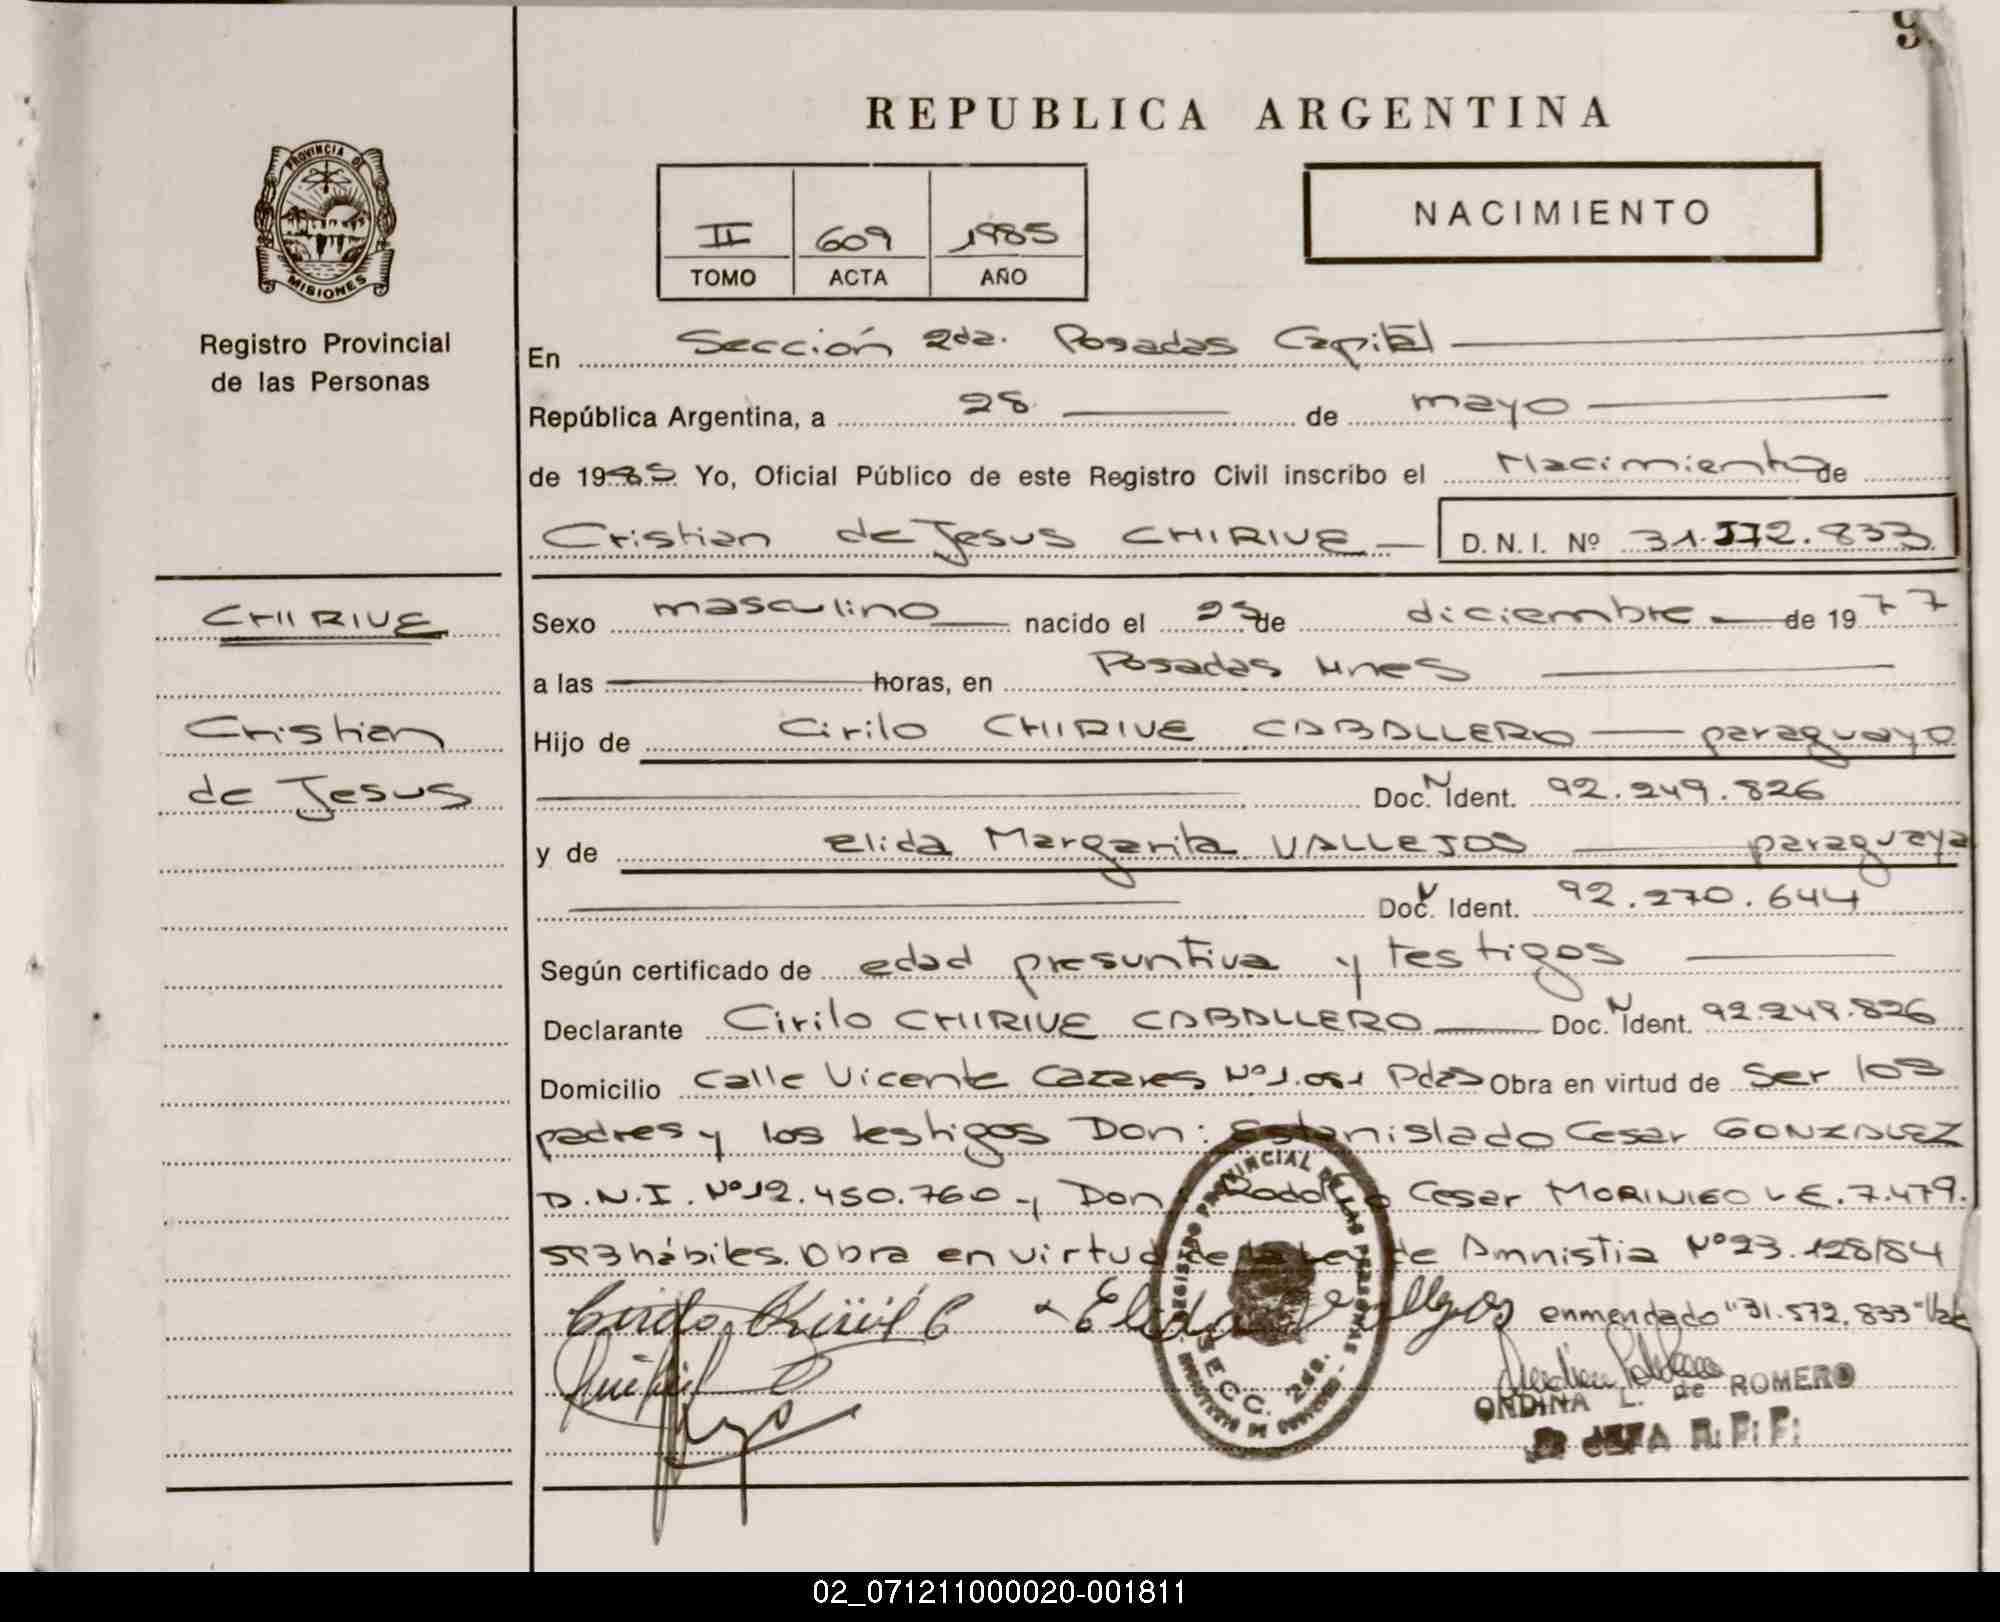 9
REPUBLICA ARGENTINA
PROVINCIA DE
MISIONES
Registro Provincial
de las Personas
II 609 1985
TOMO ACTA AÑO
NACIMIENTO
En Sección 2da. Posadas Capital
República Argentina, a 28 de mayo
de 1985 Yo, Oficial Público de este Registro Civil inscribo el Nacimiento de
Cristian de Jesus CHIRIVE D. N. I. Nº 31.572.833
CHIRIVE
Cristian
de Jesus
Sexo masculino nacido el de diciembre de 1977
a las horas, en Posadas Mnes
Hijo de Cirilo CHIRIVE CABALLERO paraguayo
Doc. N Ident. 92.249.826
y de Elida Margarita VALLEJOS paraguaya
Doc. N Ident. 92.270.644
Según certificado de edad presuntiva y testigos
Declarante Cirilo CHIRIVE CABALLERO Doc. N Ident. 92.249.826
Domicilio Calle Vicente Cazares Nº 1.051 Pdas Obra en virtud de Ser los
padres y los testigos Don: Estanislado Cesar GONZALEZ
D.N.I. Nº 12.450.760 y Don: Rodolfo Cesar MORINIGO L.E. 7.479.
593 hábiles. Obra en virtud de la Ley de Amnistia Nº 23.128/84
Elida Vallejos enmendado "31.572.833" Vale
REGISTRO PROVINCIAL DE LAS PERSONAS
SECC. 2da.
ORDINA L. de ROMERO
JEFA R. P. P.
02_071211000020-001811